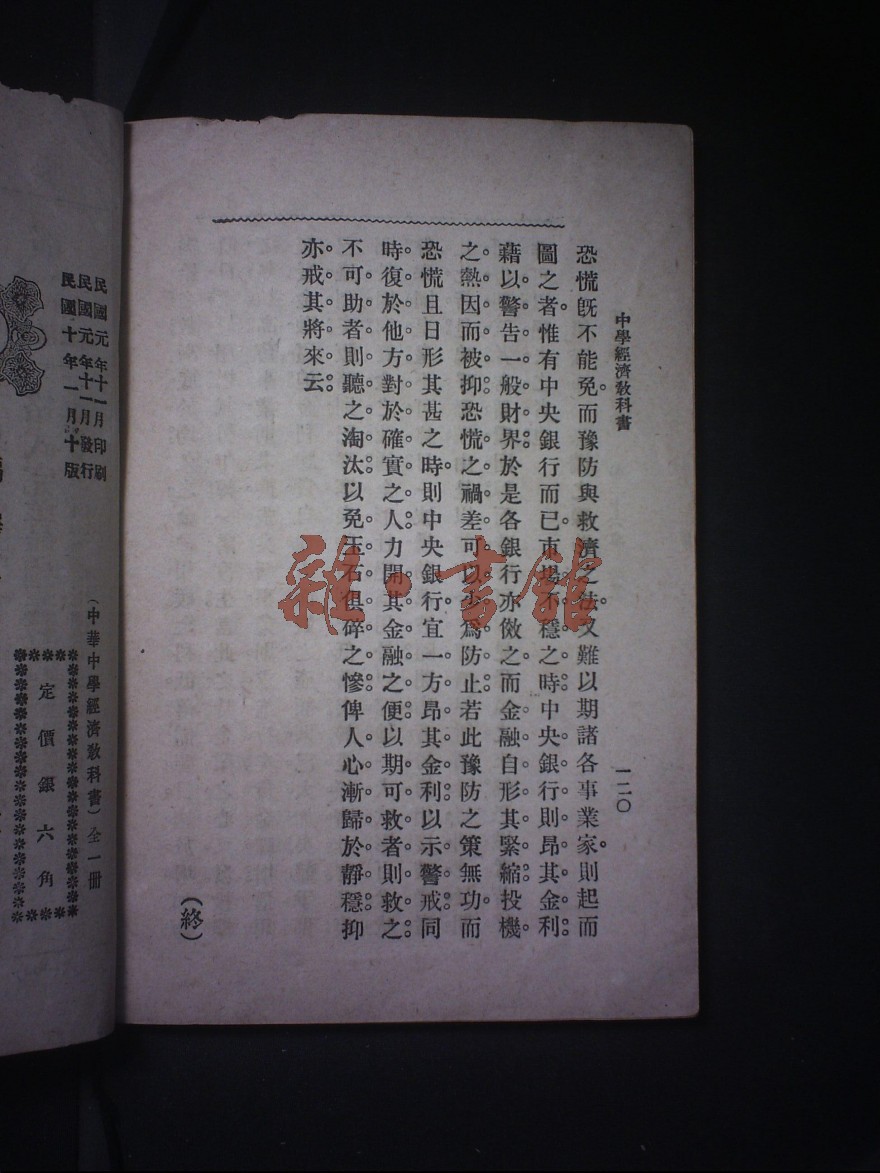 中學經濟敎科書
一二〇
恐慌旣不能免。而豫防與救濟之法。又難以期諸各事業家。則起而
圖之者。惟有中央銀行而已。市場不穩之時。中央銀行則昂其金利。
藉以警告一般財界。於是各銀行亦倣之。而金融自形其緊縮。投機
之熱。因而被抑。恐慌之禍。差可以少爲防止。若此豫防之策無功。而
恐慌且日形其甚之時。則中央銀行。宜一方昂其金利。以示警戒。同
時復於他方對於確實之人。力開其金融之便。以期可救者則救之。
不可助者則聽之淘汰。以免玉石俱碎之慘。俾人心漸歸於靜穩。抑
亦戒其將來云。
(終)
民國元年十一月印刷
民國元年十一月發行
民國十年一月十版
(中華中學經濟敎科書)全一册
定價銀六角
雜·書館